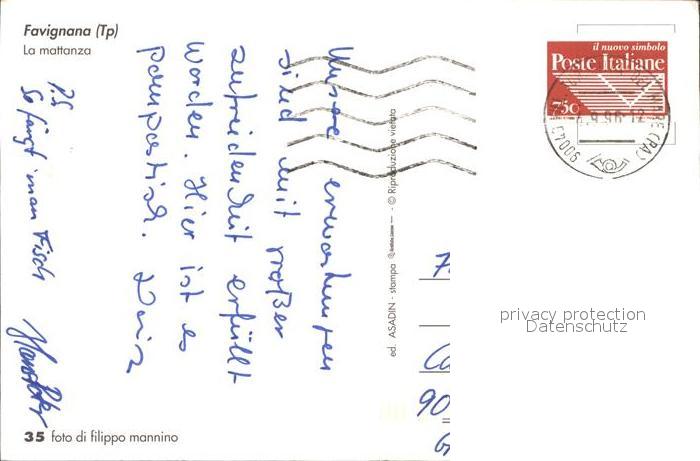 Favignana (Tp)
La mattanza
Unsere erwartungen
sind mit großer
zufriedenheit erfüllt
worden. Hier ist es
pompastisch.
P.S
So fängt man Fisch
35 foto di filippo mannino
ed. ASADIN - stampa
- © Riproduzione vietata
il nuovo simbolo
Poste Italiane
750
(PA)
90
privacy protection
Datenschutz